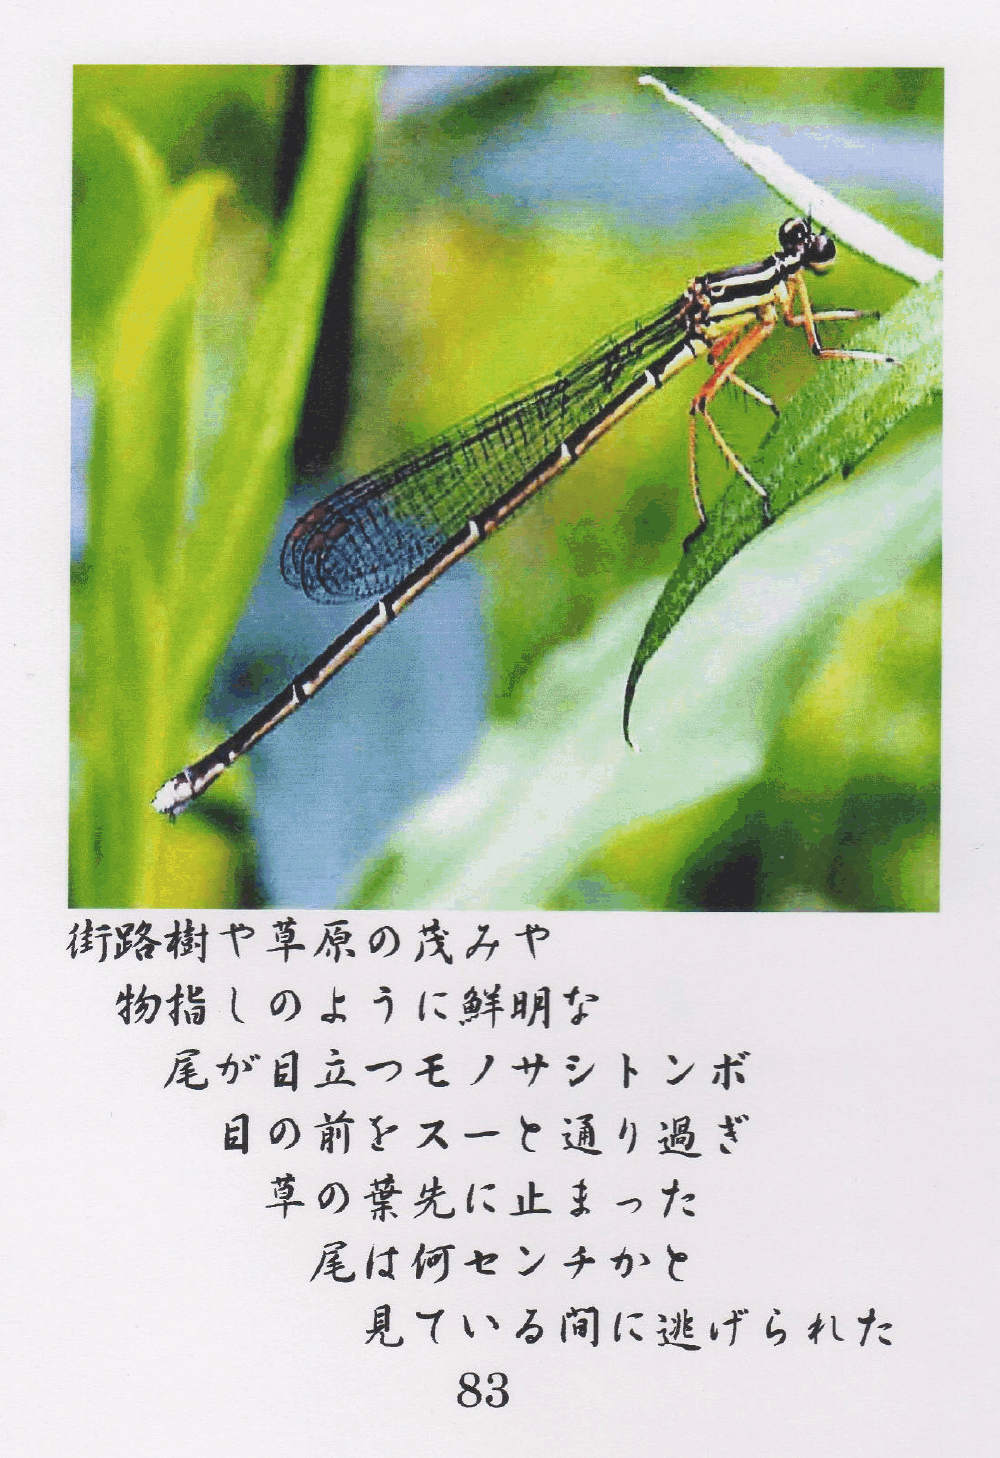 街路樹や草原の茂みや
物指しのように鮮明な
尾が目立つモノサシトンボ
目の前をスーと通り過ぎ
草の葉先に止まった
尾は何センチかと
見ている間に逃げられた
83